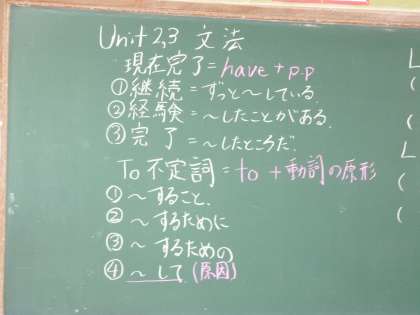 Unit 2,3 文法
現在完了=have+p.p
①継続=ずっと〜している.
②経験=〜したことがある.
③完了=〜したところだ.
To不定詞=to+動詞の原形
①〜すること.
②〜するために
③〜するための
④〜して(原因)